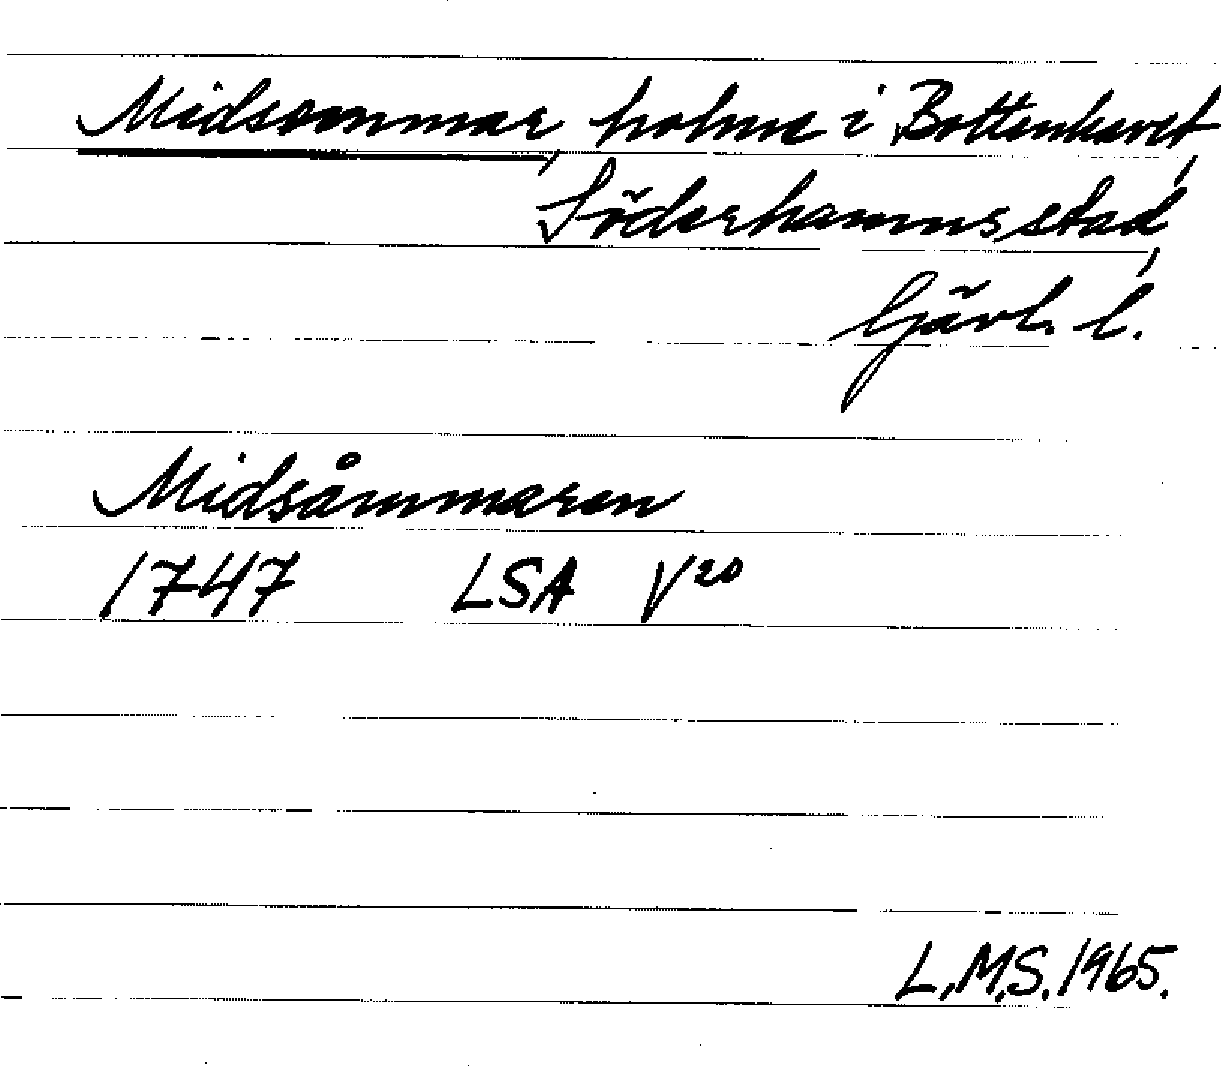 Midsommar, holme i Bottenhavet,
Söderhamns stad,
Gävl. l.
Midsåmmaren
1747 LSA V20
L.M.S. 1965.